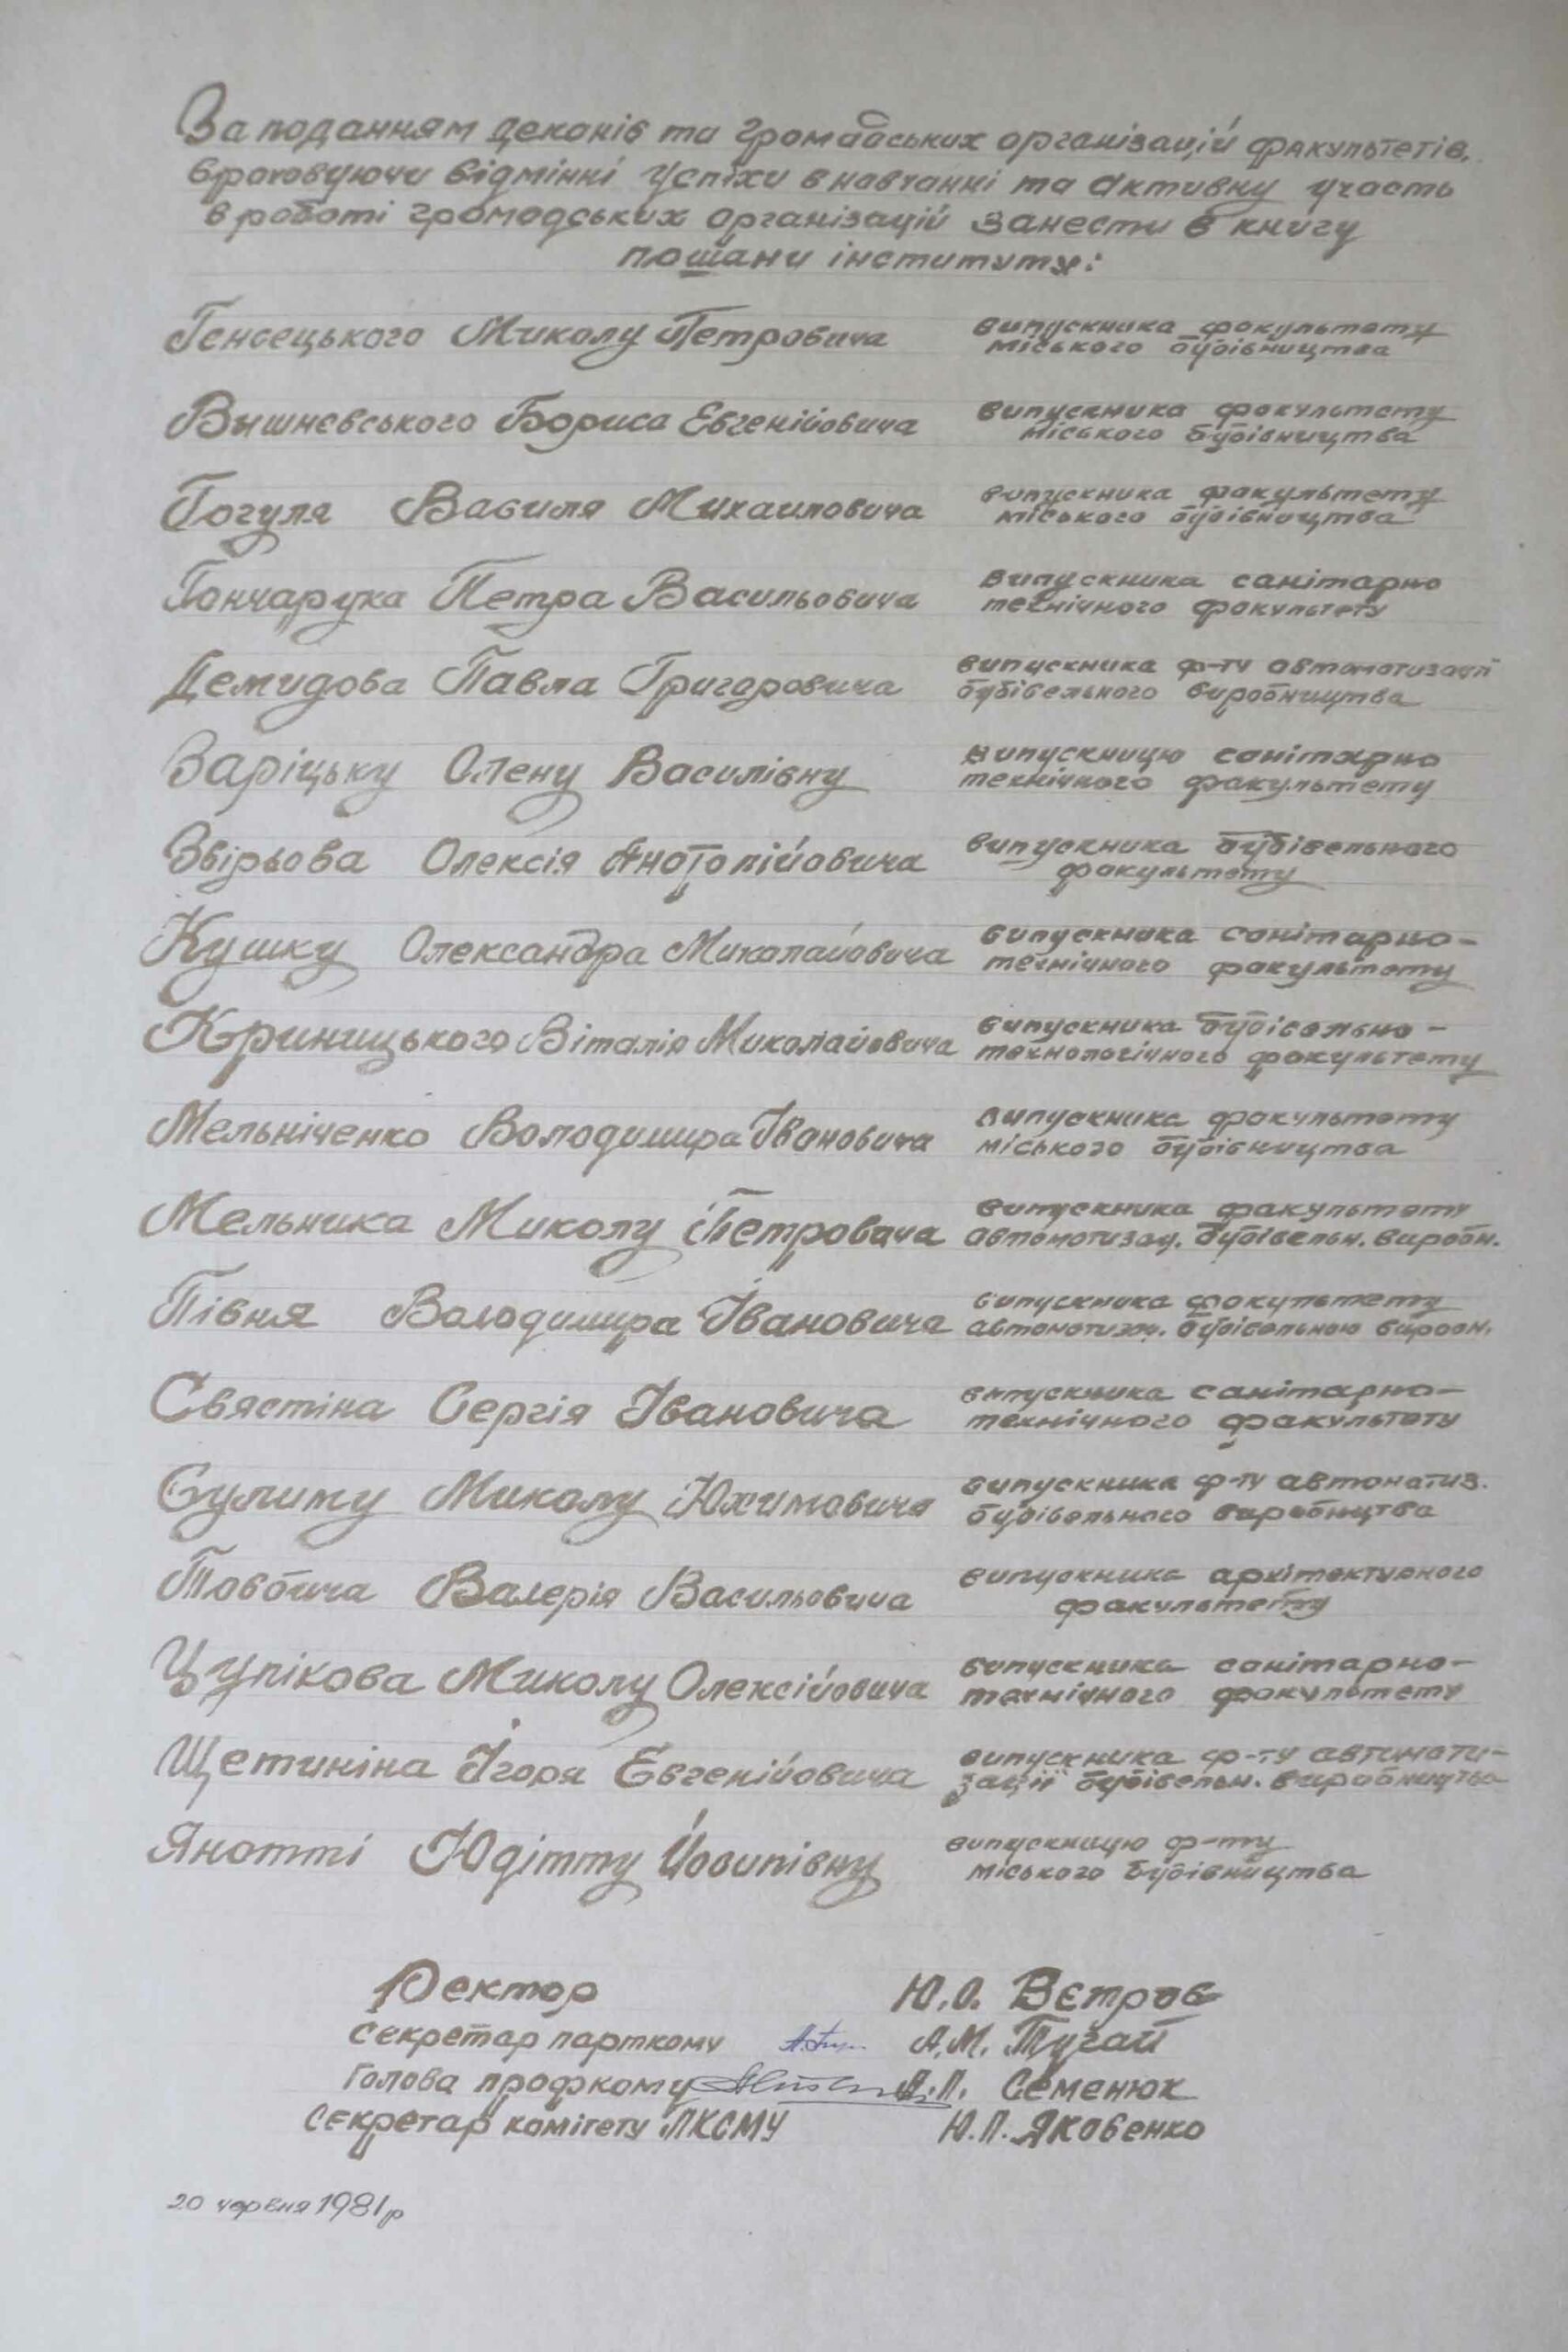 За поданням деканів та громадських організацій факультетів,
враховуючи відмінні успіхи в навчанні та активну участь
в роботі громадських організацій занести в книгу
пошани інституту:
Генсецького Миколу Петровича випускника факультету
міського будівництва
Вышневського Бориса Евгенійовича випускника факультету
міського будівництва
Гогуля Василя Михайловича випускника факультету
міського будівництва
Гончарука Петра Васильовича випускника санітарно
технічного факультету
Демидова Павла Григоровича випускника ф-ту автоматизації
будівельного виробництва
Заріцьку Олену Василівну випускницю санітарно
технічного факультету
Звірьова Олексія Анатолійовича випускника будівельного
факультету
Кушку Олександра Миколайовича випускника санітарно-
технічного факультету
Криницького Віталія Миколайовича випускника будівельно-
технологічного факультету
Мельніченко Володимира Івановича випускника факультету
міського будівництва
Мельника Миколу Петровича випускника факультету
автоматизац. будівельн. виробн.
Півня Володимира Івановича випускника факультету
автоматизац. будівельного виробн.
Свястіна Сергія Івановича випускника санітарно-
технічного факультету
Сулиму Миколу Юхимовича випускника ф-ту автоматиз.
будівельного виробництва
Товбича Валерія Васильовича випускника архітектурного
факультету
Цупікова Миколу Олексійовича випускника санітарно-
технічного факультету
Щетиніна Ігоря Евгенійовича випускника ф-ту автомати-
зації будівельн. виробництва
Янотті Юдітту Йосипівну випускницю ф-ту
міського будівництва
Ректор Ю.О. Вєтров
Секретар парткому А.М. Тугай
Голова профкому А.П. Семенюк
Секретар комітету ЛКСМУ Ю.П. Яковенко
20 червня 1981р